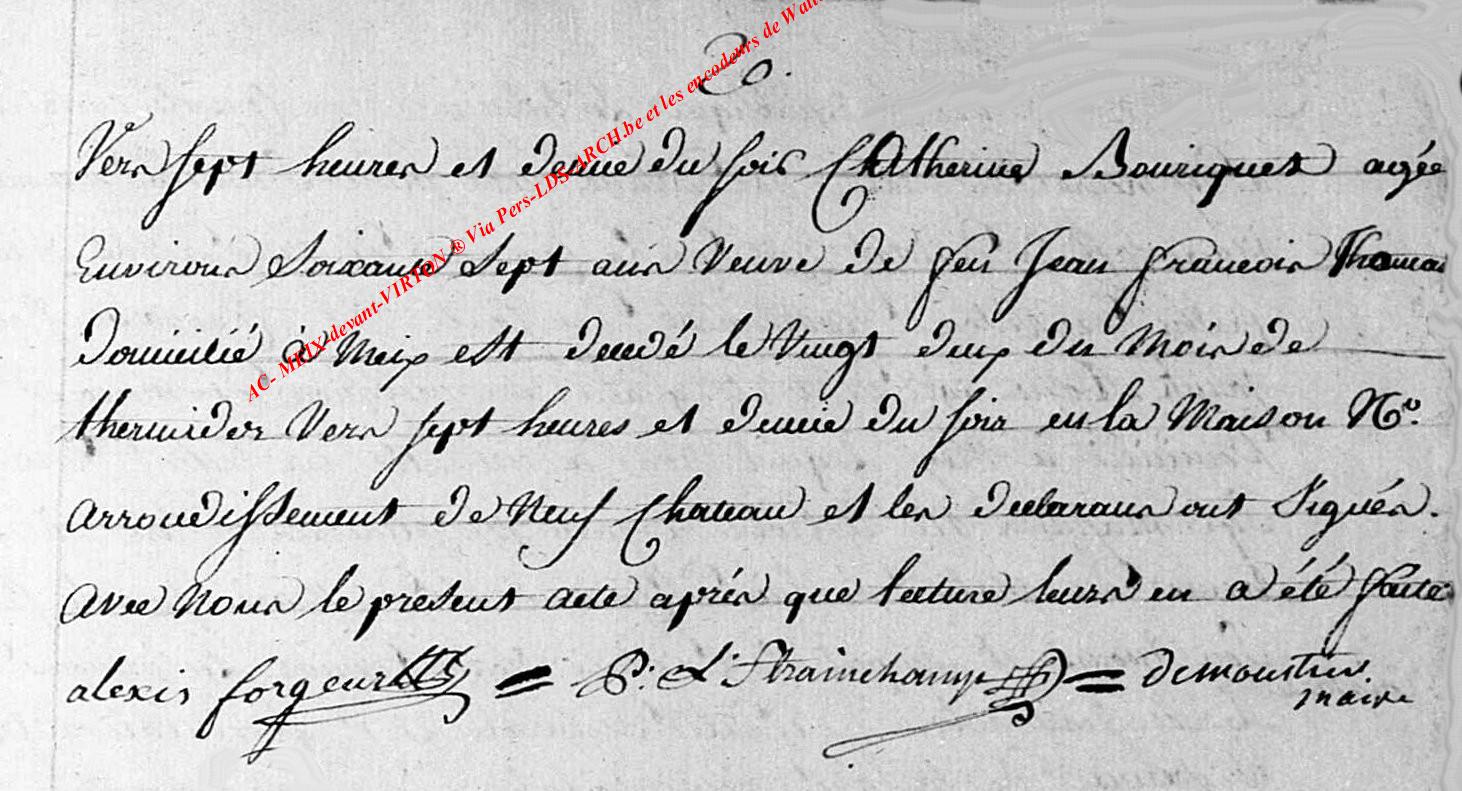 AC- MEIX-devant-VIRTON ® Via Pers-LDS-ARCH.be et les encodeurs de
Vers sept heures et demie du soir Catherine Bouriquet agée
Environs Soixante Sept ans Veuve de feu Jean francois Thomas
domicilié à Meix est decedé le Vingt deux du Mois de
thermidor Vers sept heures et demie du soir en la Maison No.
arrondissement de Neuf Chateau et les declarans ont Signés.
avec Nous le present acte aprés que lecture leurs en a été faite
alexis forgeur = P: Strainchamp = demoustier.
maire